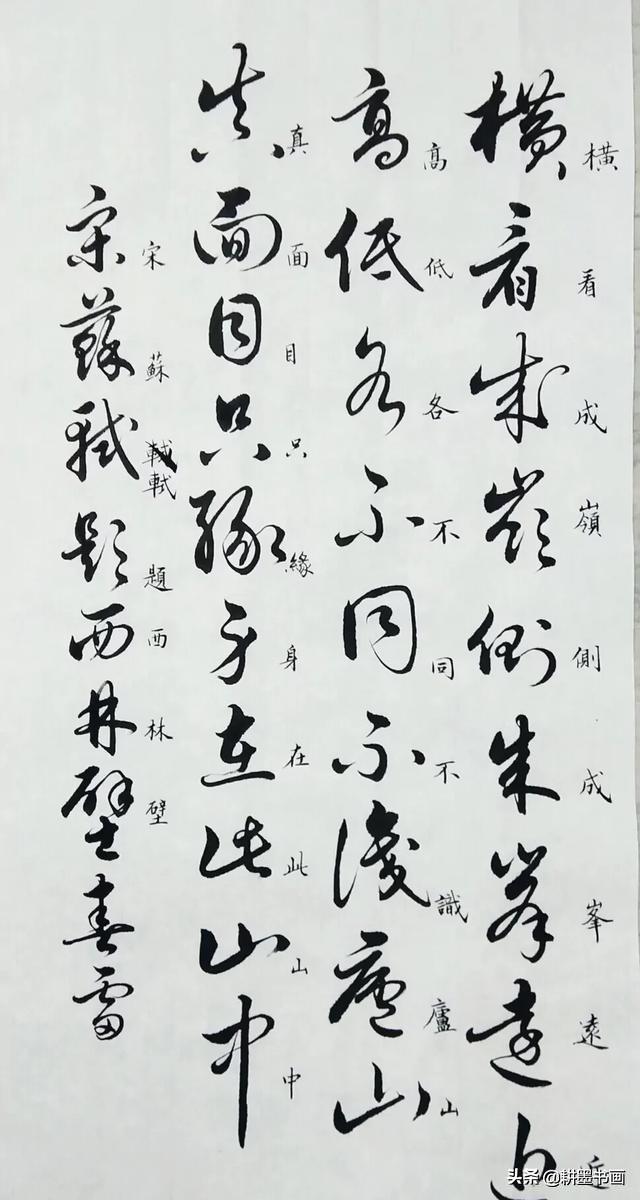 橫看成嶺側成峯遠近
橫看成嶺側成峯遠近
高低各不同不識廬山
高低各不同不識廬山
真面目只緣身在此山中
真面目只緣身在此山中
宋蘇軾題西林壁
宋蘇軾題西林壁春雷
头条 @耕墨书画